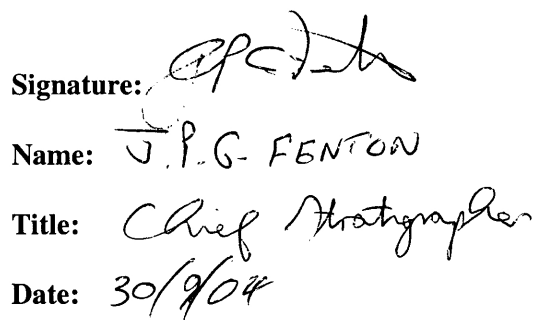 Signature:
Name: J.P.G. FENTON
Title: Chief Stratigrapher
Date: 30/9/04